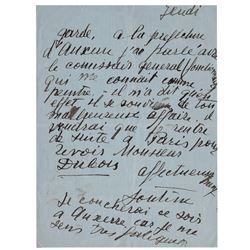 Jeudi
garde, a la prefecture
d'Auxerre j'ai parlé avec
le comissair general,
qui me connait comme
peintre, il m'a dit qu'en
effet il se souvient de ton
malheureuse affaire, il
vendrai que je rentre
de suite à Paris pour
revoir Monsieur
Dubois
affectueusement
Soutine
Je coucherai ce soir
a Auxerre, car je me
sens très fatigué